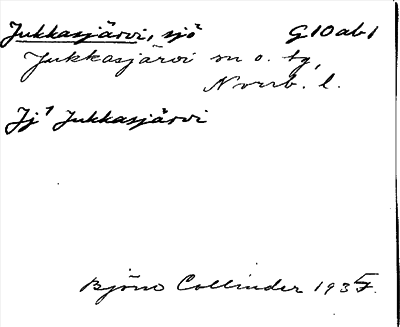 Jukkasjärvi, sjö G10ab1
Jukkasjärvi sn o. tg,
Norrb. l.
Jj⁹ Jukkasjärvi
Björn Collinder 1935